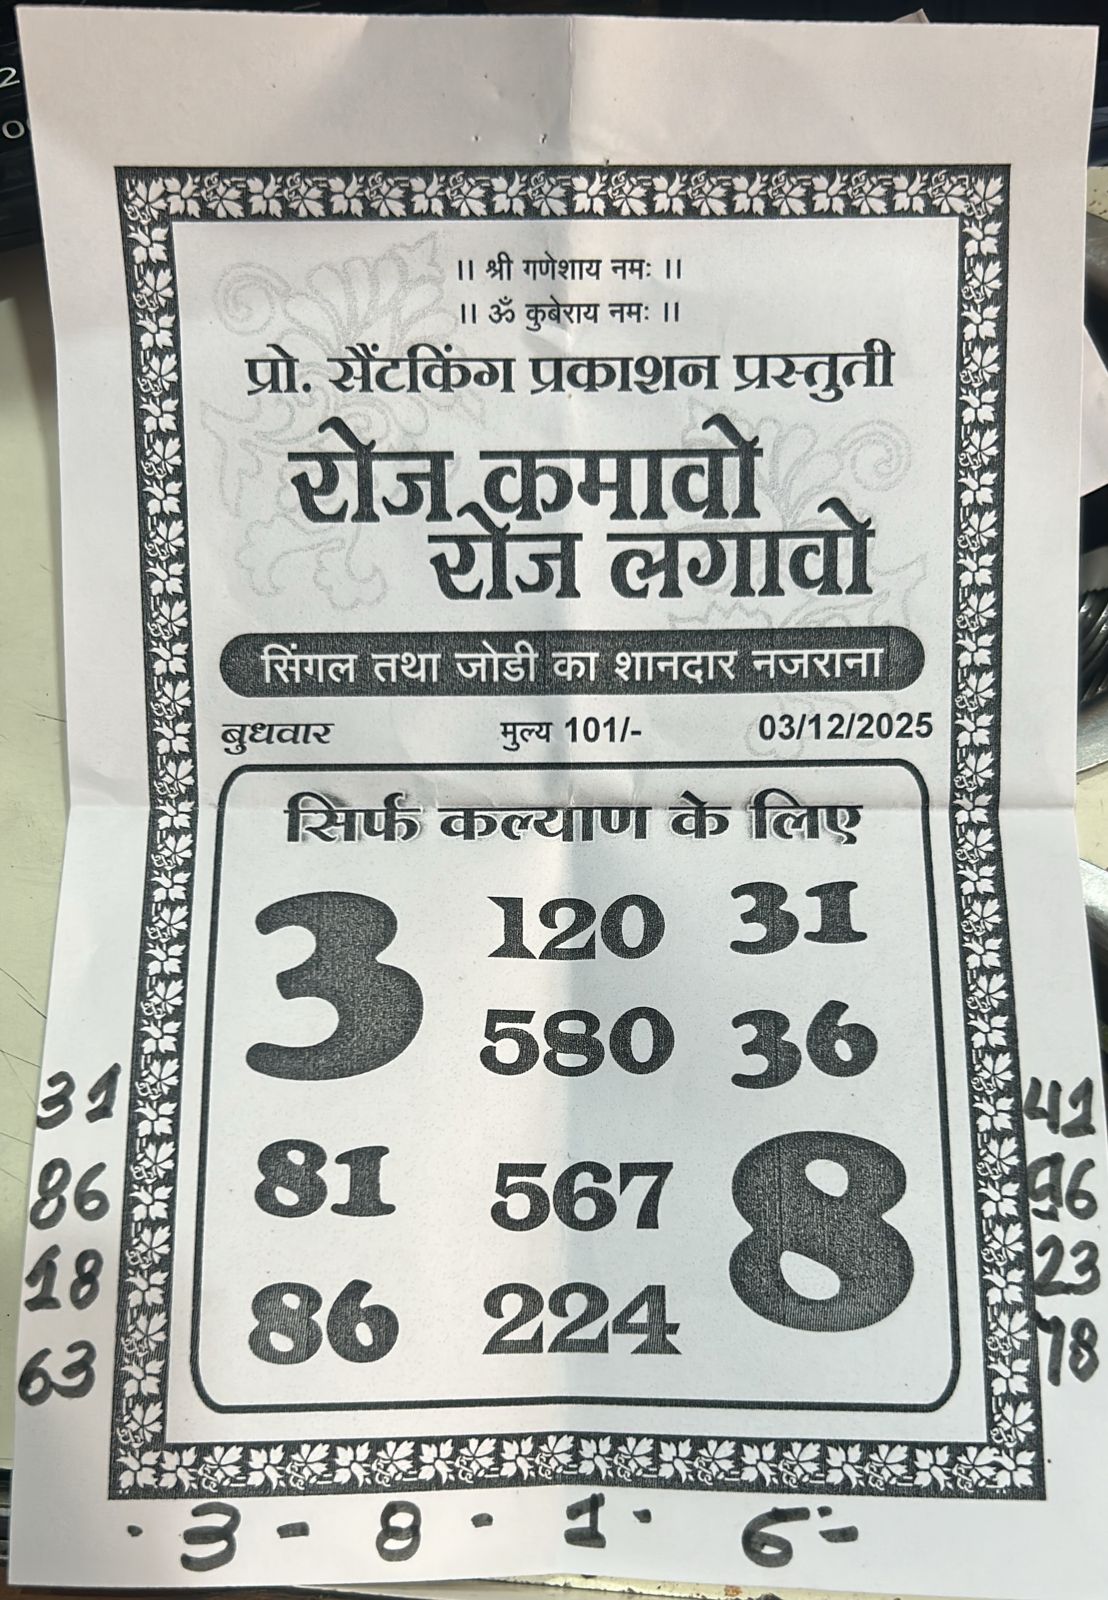 ।। श्री गणेशाय नमः ।।
।। ॐ कुबेराय नमः ।।
प्रो. सैंटकिंग प्रकाशन प्रस्तुती
रोज कमावो
रोज लगावो
सिंगल तथा जोडी का शानदार नजराना
बुधवार मुल्य 101/- 03/12/2025
सिर्फ कल्याण के लिए
3 120 31
580 36
81 567 8
86 224
31
86
18
63
41
96
23
78
· 3 - 8 - 1 · 6 =